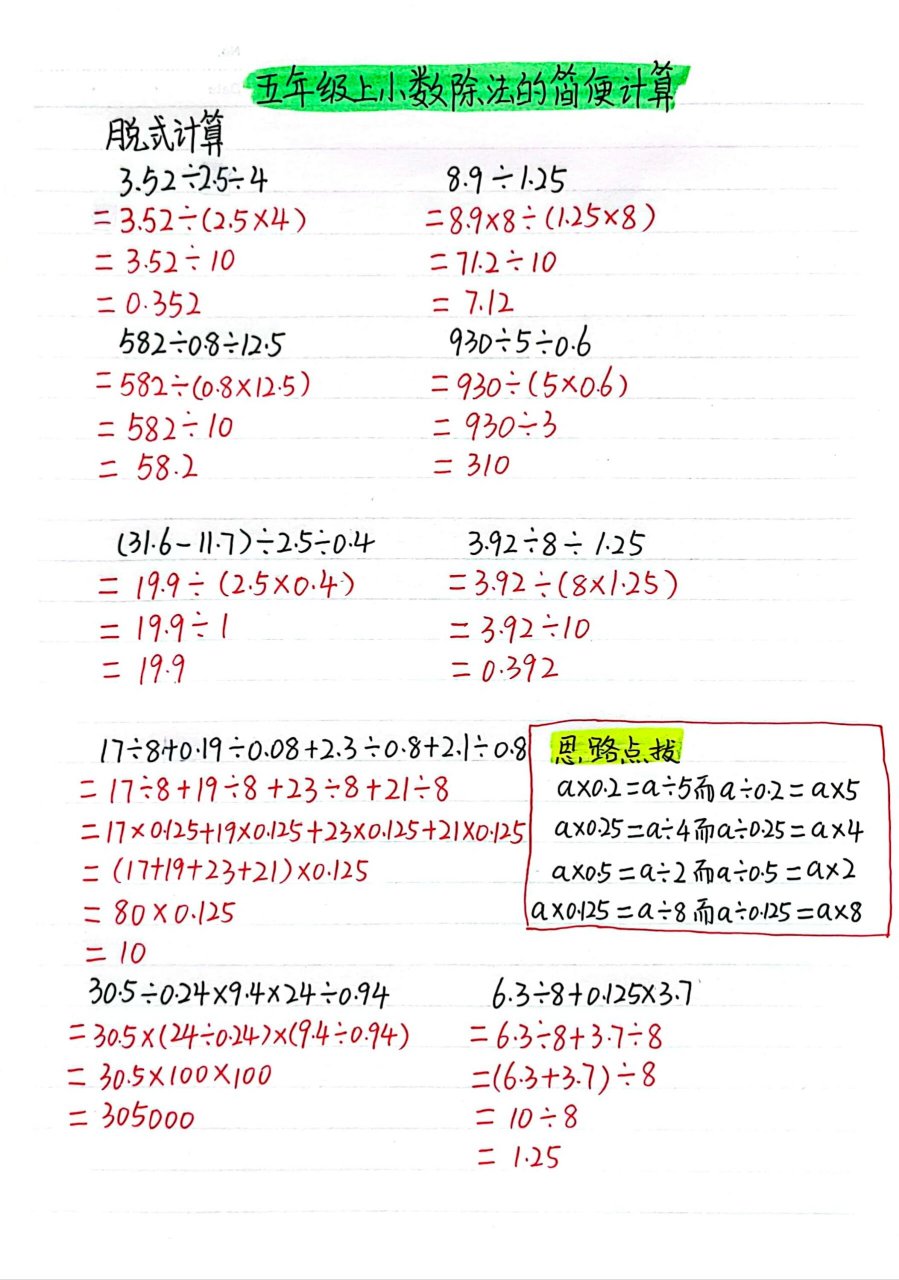 五年级上小数除法的简便计算
脱式计算
3.52÷2.5÷4
=3.52÷(2.5×4)
=3.52÷10
=0.352
8.9÷1.25
=8.9×8÷(1.25×8)
=71.2÷10
=7.12
582÷0.8÷12.5
=582÷(0.8×12.5)
=582÷10
=58.2
930÷5÷0.6
=930÷(5×0.6)
=930÷3
=310
(31.6-11.7)÷2.5÷0.4
=19.9÷(2.5×0.4)
=19.9÷1
=19.9
3.92÷8÷1.25
=3.92÷(8×1.25)
=3.92÷10
=0.392
17÷8+0.19÷0.08+2.3÷0.8+2.1÷0.8
=17÷8+19÷8+23÷8+21÷8
=17×0.125+19×0.125+23×0.125+21×0.125
=(17+19+23+21)×0.125
=80×0.125
=10
思路点拨
a×0.2=a÷5而a÷0.2=a×5
a×0.25=a÷4而a÷0.25=a×4
a×0.5=a÷2而a÷0.5=a×2
a×0.125=a÷8而a÷0.125=a×8
30.5÷0.24×9.4×24÷0.94
=30.5×(24÷0.24)×(9.4÷0.94)
=30.5×100×100
=305000
6.3÷8+0.125×3.7
=6.3÷8+3.7÷8
=(6.3+3.7)÷8
=10÷8
=1.25